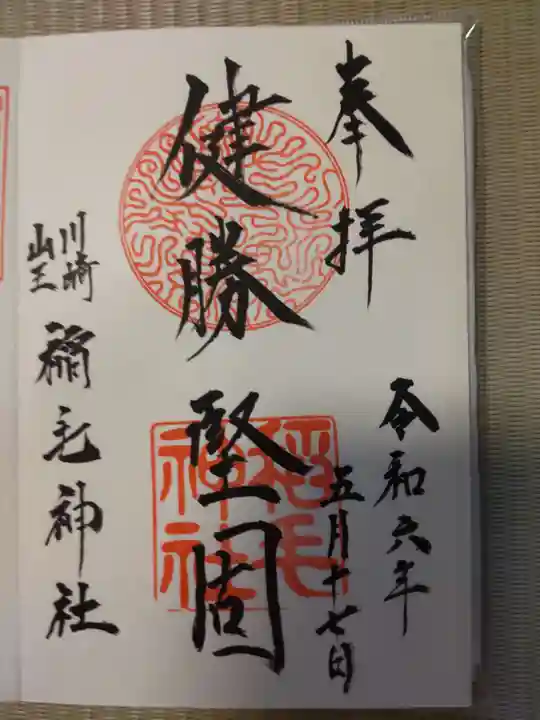 奉拝
令和六年
五月十七日
健勝堅固
稲毛神社
川崎
山王
稲毛神社